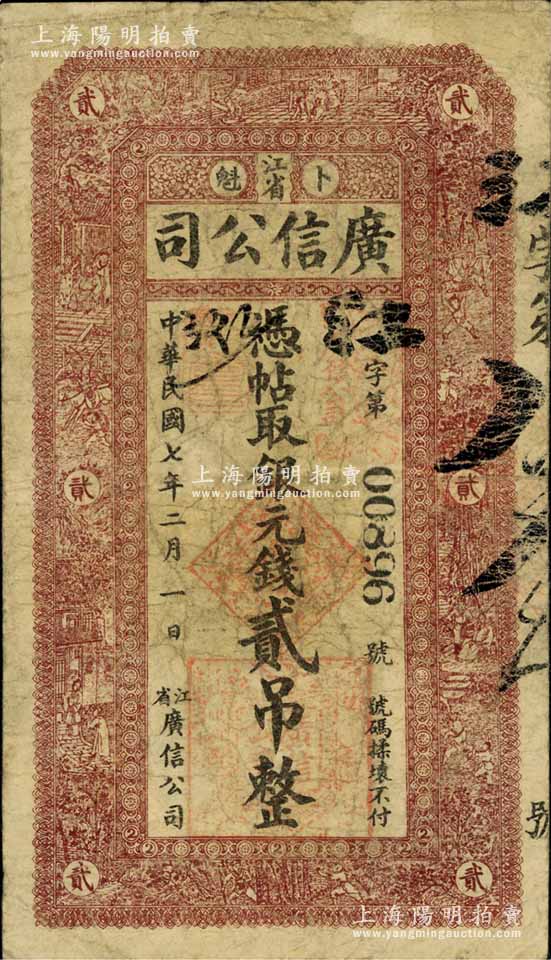 上海陽明拍賣
www.yangmingauction.com
貳
貳
卜江省魁
廣信公司
江字第
號
江
字第
00296
號
號碼揉壞不付
憑帖取銀元錢貳吊整
中華民國七年二月一日
江省廣信公司
貳
貳
上海陽明拍賣
www.yangmingauction.com
貳
貳
上海陽明拍賣
www.yangmingauction.com